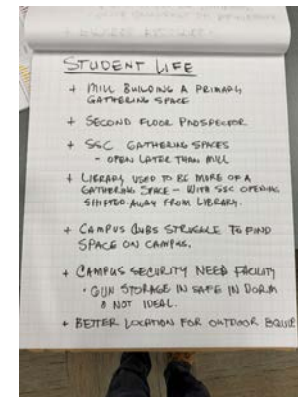 STUDENT LIFE
+ MILL BUILDING A PRIMARY
GATHERING SPACE
+ SECOND FLOOR PROSPECTOR
+ SSC GATHERING SPACES
- OPEN LATER THAN MILL
+ LIBRARY USED TO BE MORE OF A
GATHERING SPACE - WITH SSC OPENING
SHIFTED AWAY FROM LIBRARY.
+ CAMPUS CLUBS STRUGGLE TO FIND
SPACE ON CAMPUS.
+ CAMPUS SECURITY NEED FACILITY
• GUN STORAGE IN SAFE IN DORM
IS NOT IDEAL.
+ BETTER LOCATION FOR OUTDOOR EQUIP